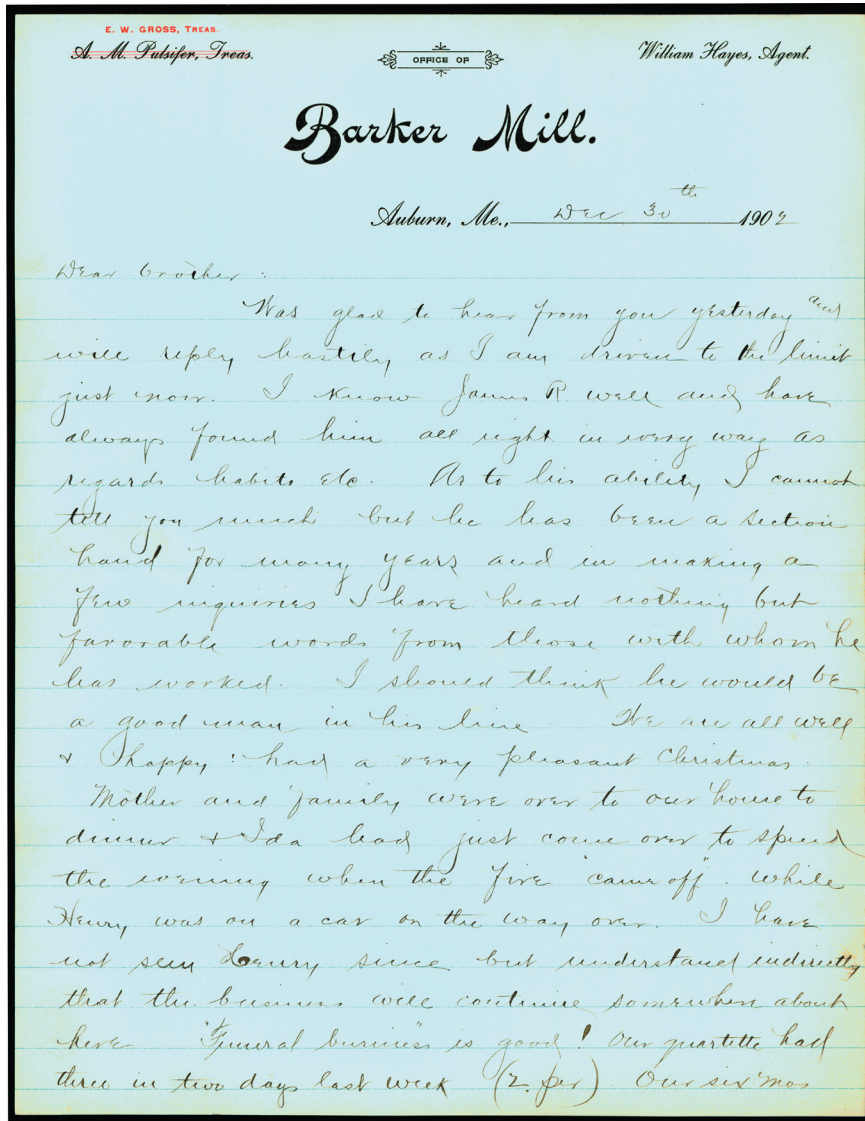 E. W. GROSS, TREAS.
A. M. Pulsifer, Treas.
OFFICE OF
William Hayes, Agent.
Barker Mill.
Auburn, Me., Dec 30th 1902
Dear brother:
Was glad to hear from you yesterday and
will reply hastily as I am driven to the limit
just now. I know James R well and have
always found him all right in every way as
regards habits etc. As to his ability I cannot
tell you much but he has been a section
hand for many years and in making a
few inquiries I have heard nothing but
favorable words from those with whom he
has worked. I should think he would be
a good man in his line We are all well
& happy: had a very pleasant Christmas.
Mother and family were over to our home to
dinner & Ida had just come over to spend
the evening when the fire "came off". while
Henry was on a car on the way over. I have
not seen Henry since but understand indirectly
that the business will continue somewhere about
here "Funeral business" is good! Our quartette had
three in two days last week (2. per) Our six mos